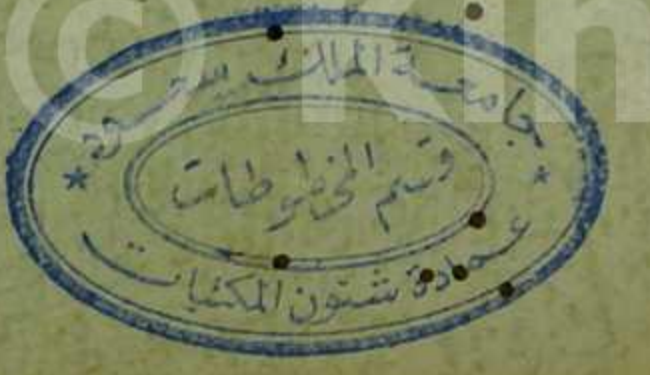 جامعة الملك سعود
قسم المخطوطات
عمادة شئون المكتبات
© Kin